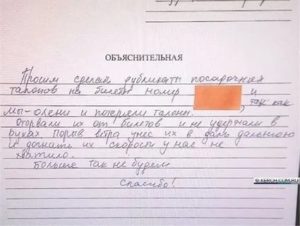 ОБЪЯСНИТЕЛЬНАЯ
Просим сделать дубликаты посадочных
талонов на билеты номер и
, так как
мы - олени и потеряли талоны.
Оторвали их от билетов и не удержали в
руках. Порыв ветра унес их в даль далекую
и догнать их скорости у нас не
хватило.
Больше так не будем
Спасибо!